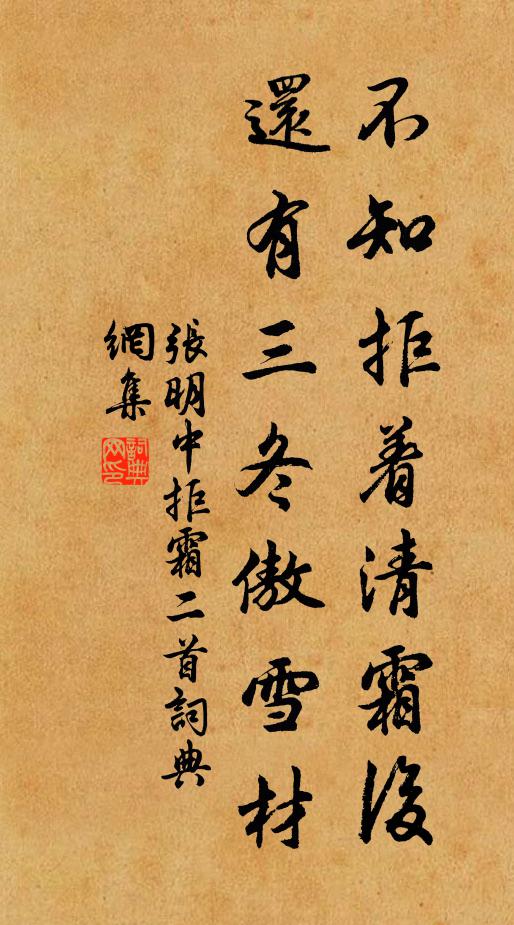 不知拒着清霜後
還有三冬傲雪材
張明中拒霜二首詞典
網集
詞典
网印